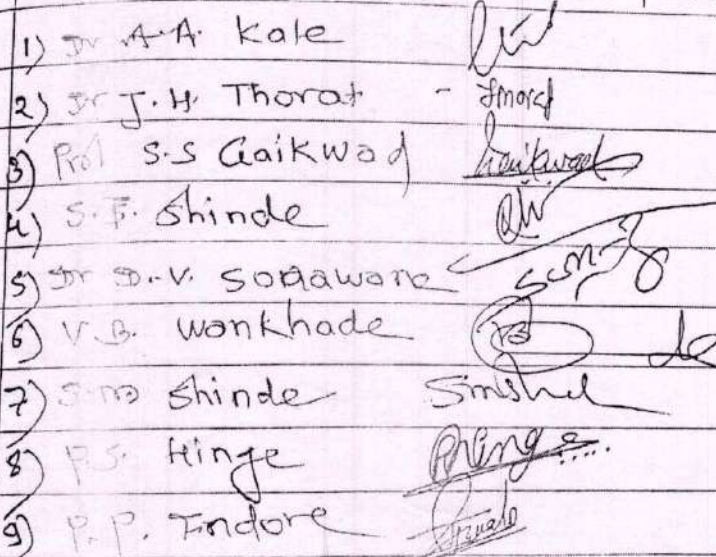 1) Dr A.A. Kale
2) Dr J.H. Thorat - Thorat
3) Prof S.S Gaikwad Gaikwad
4) S.F. Shinde
5) Dr D.V. Sonawane
6) V.B. Wankhade
7) S.M Shinde Smshi
8) P.S. Hinge PHinge
9) P.P. Indore